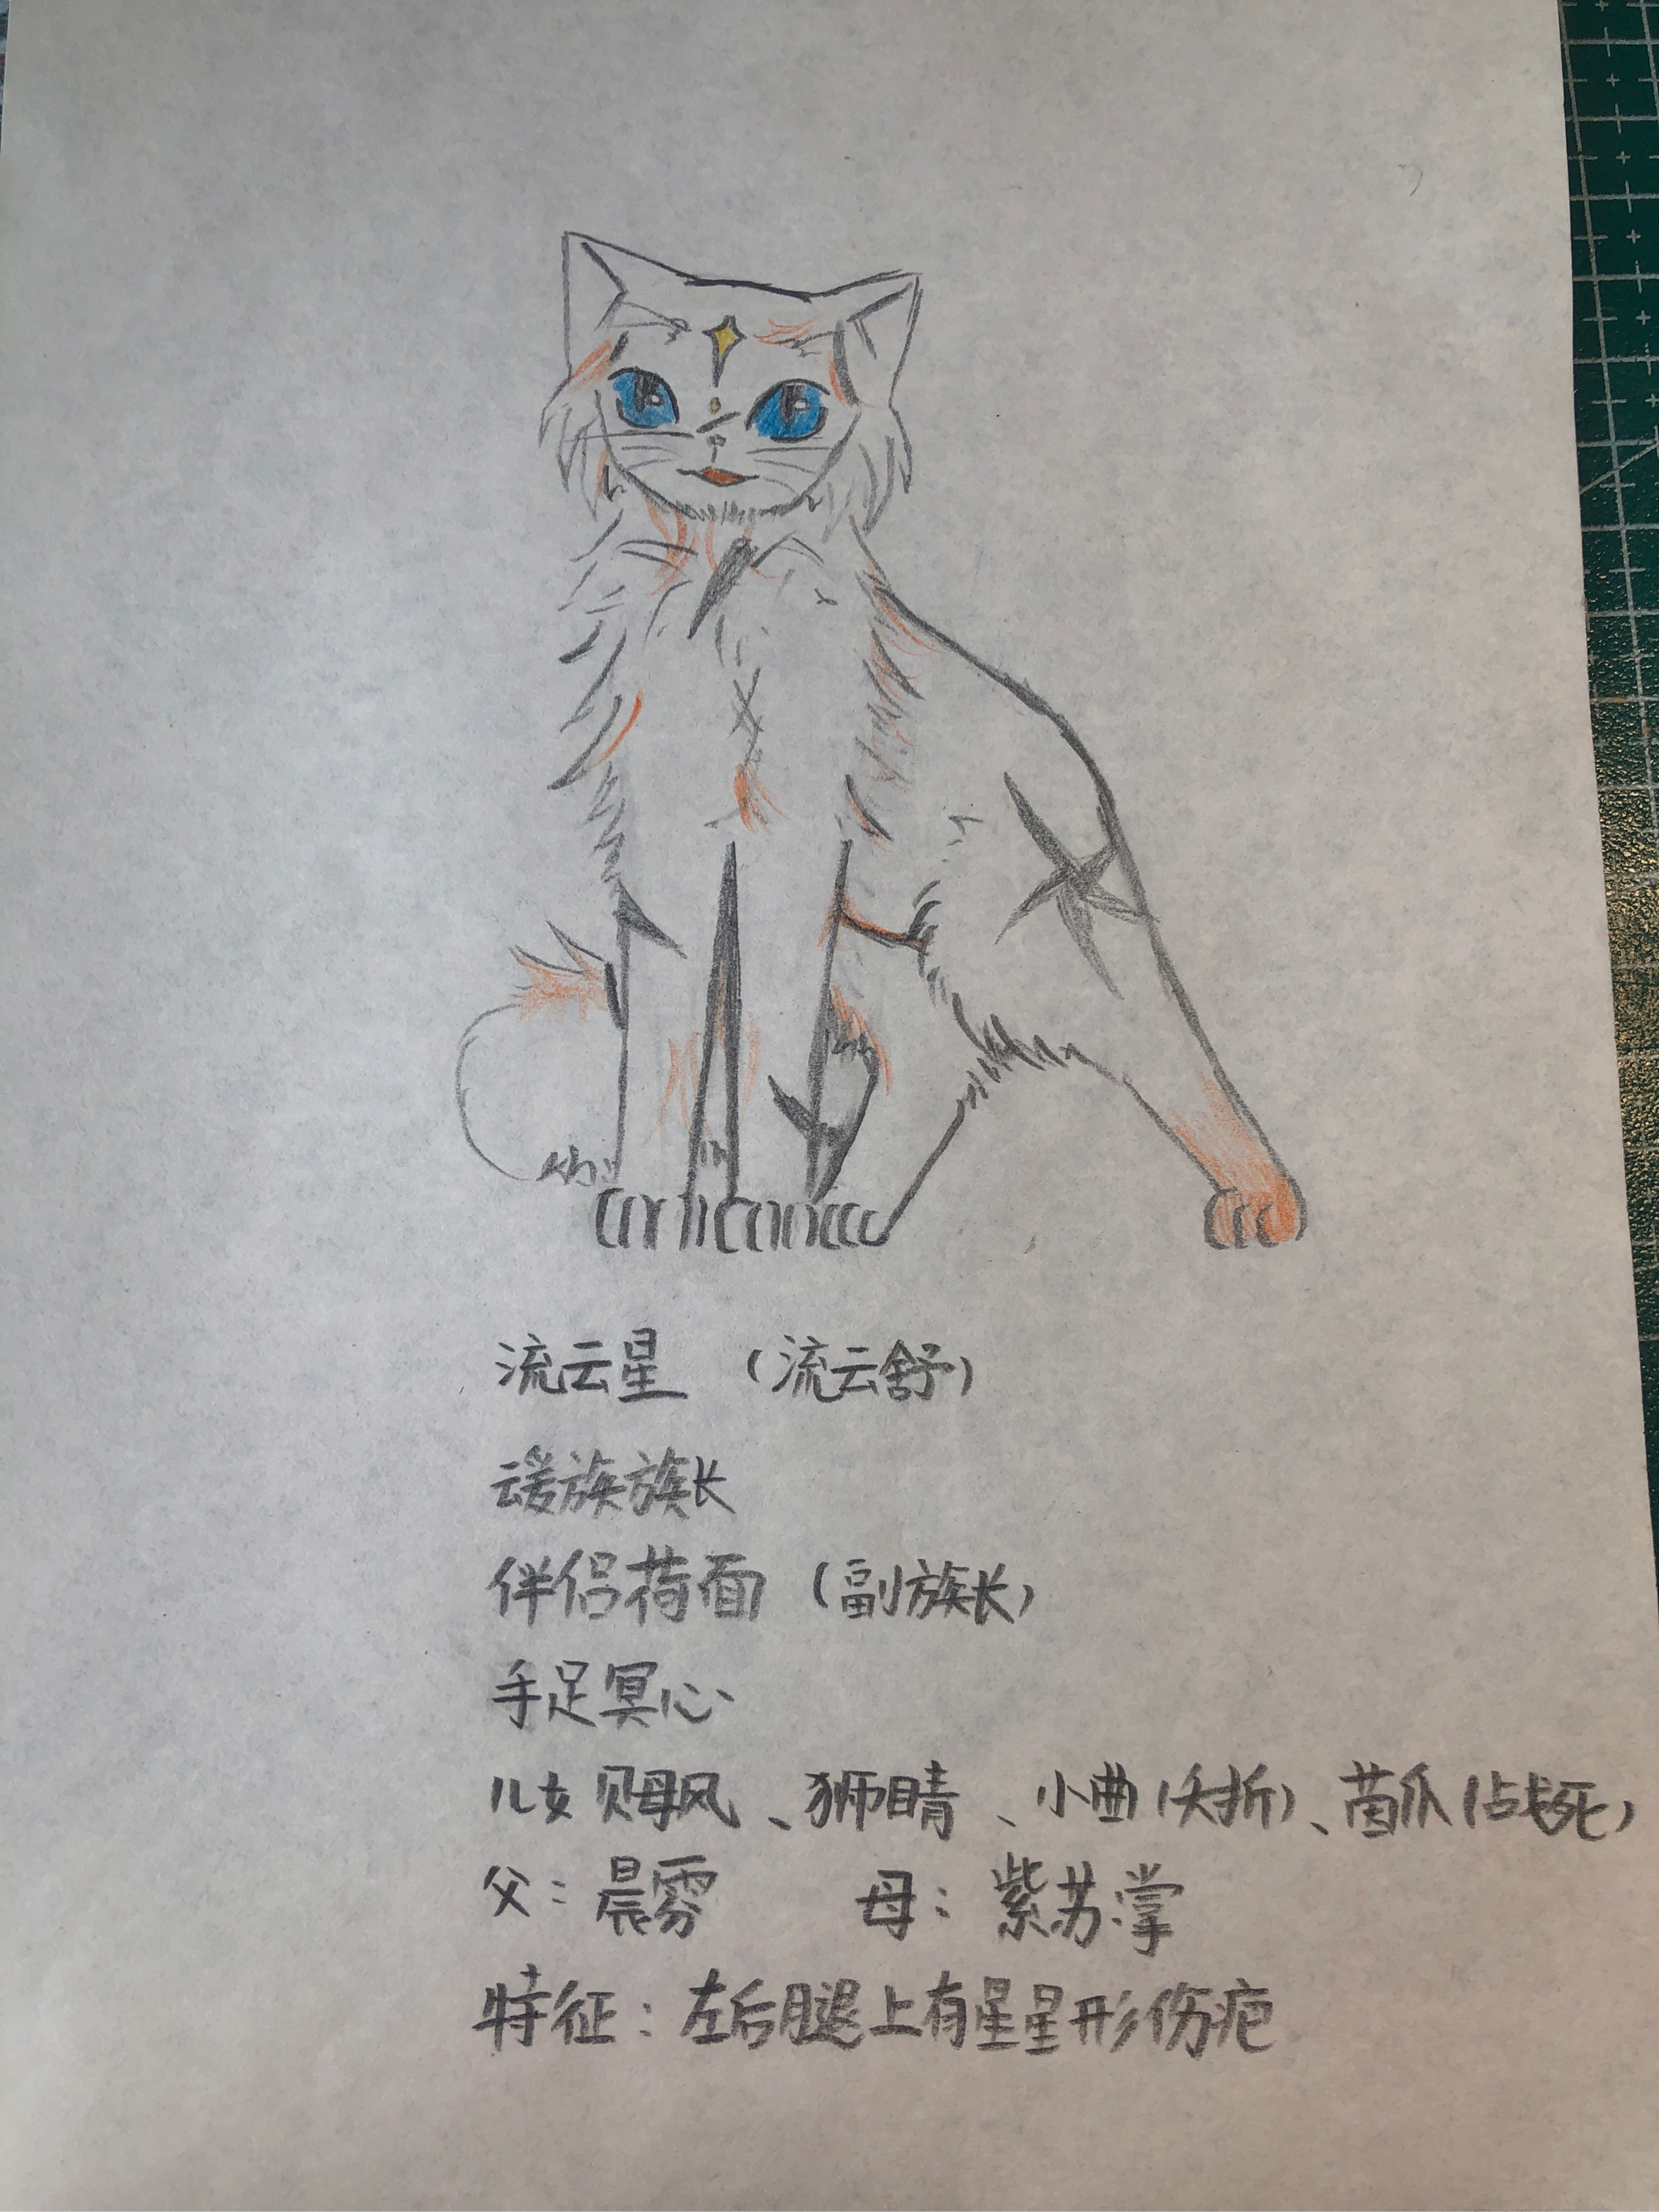 流云星 (流云舒)
云爱族族长
伴侣荷面 (副族长)
手足冥心
儿女 飓风、狮睛、小曲(夭折)、茵爪(战死)
父:晨雾 母:紫苏掌
特征:左后腿上有星星形伤疤